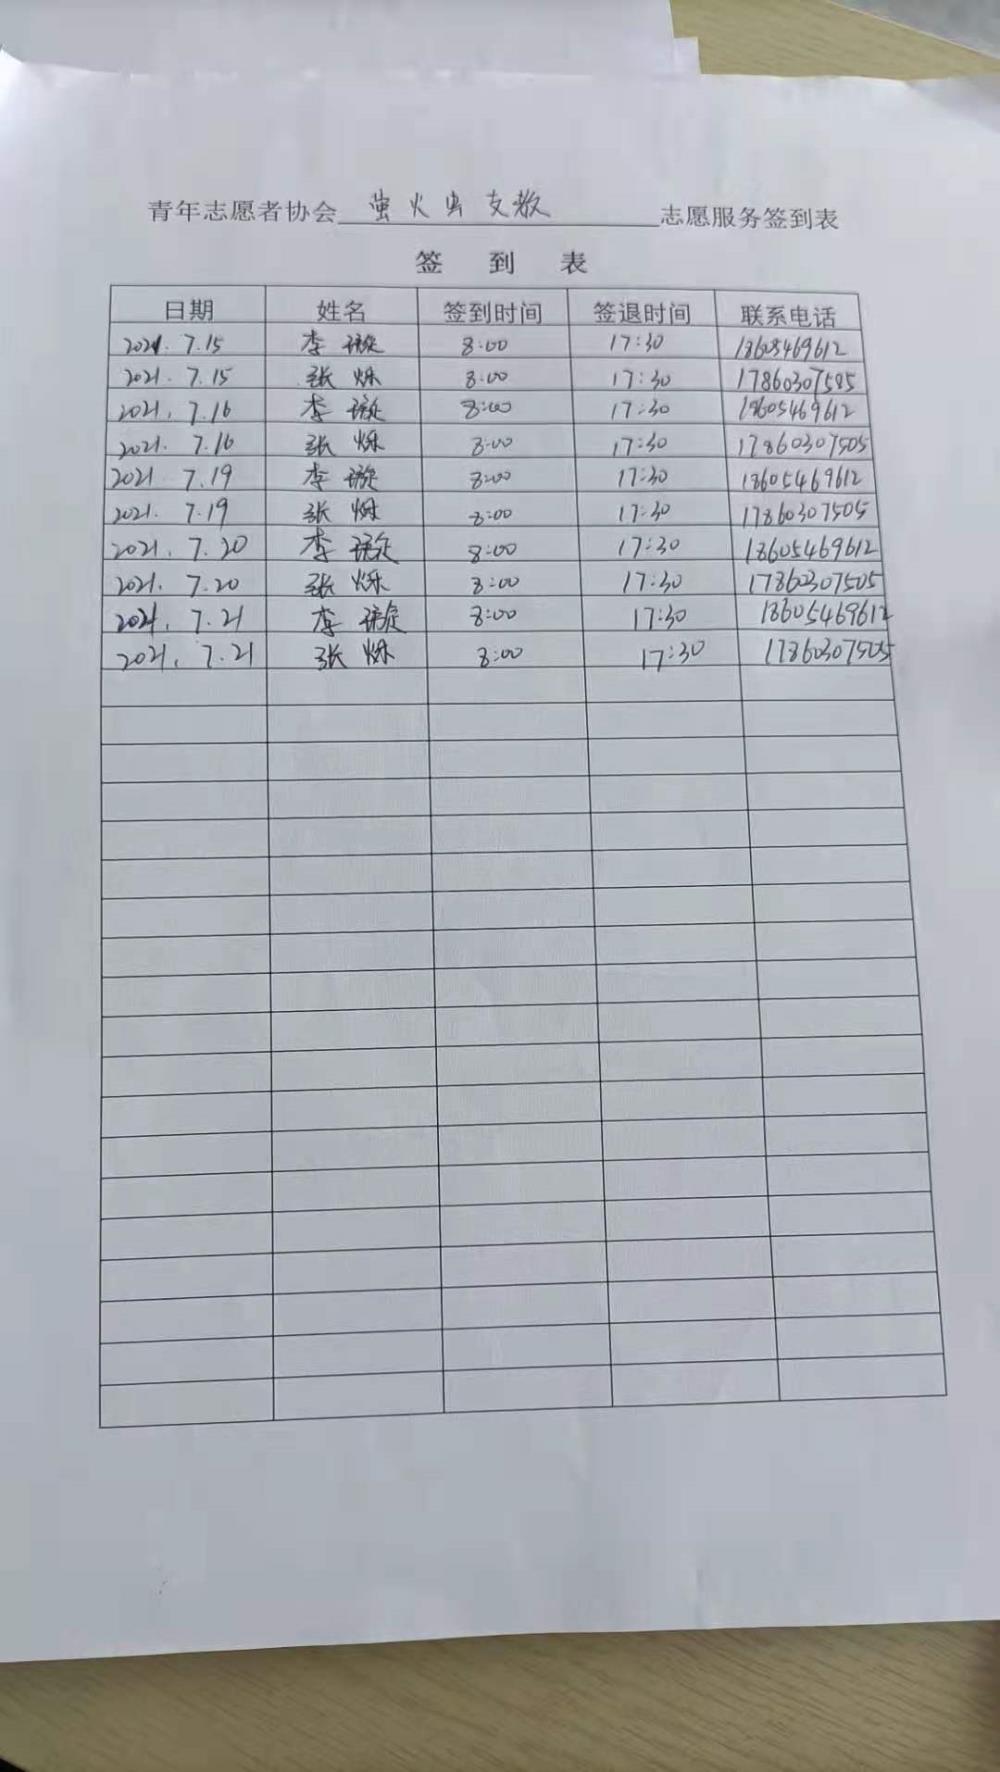 青年志愿者协会 萤火虫支教 志愿服务签到表
签 到 表
日期 姓名 签到时间 签退时间 联系电话
2021. 7.15 李璇 8:00 17:30 18605469612
2021. 7.15 张烁 8:00 17:30 17860307505
2021. 7.16 李璇 8:00 17:30 18605469612
2021. 7.16 张烁 8:00 17:30 17860307505
2021 7.19 李璇 8:00 17:30 18605469612
2021. 7.19 张烁 8:00 17:30 17860307505
2021. 7.20 李璇 8:00 17:30 18605469612
2021. 7.20 张烁 8:00 17:30 17860307505
2021. 7.21 李璇 8:00 17:30 18605469612
2021. 7.21 张烁 8:00 17:30 17860307505